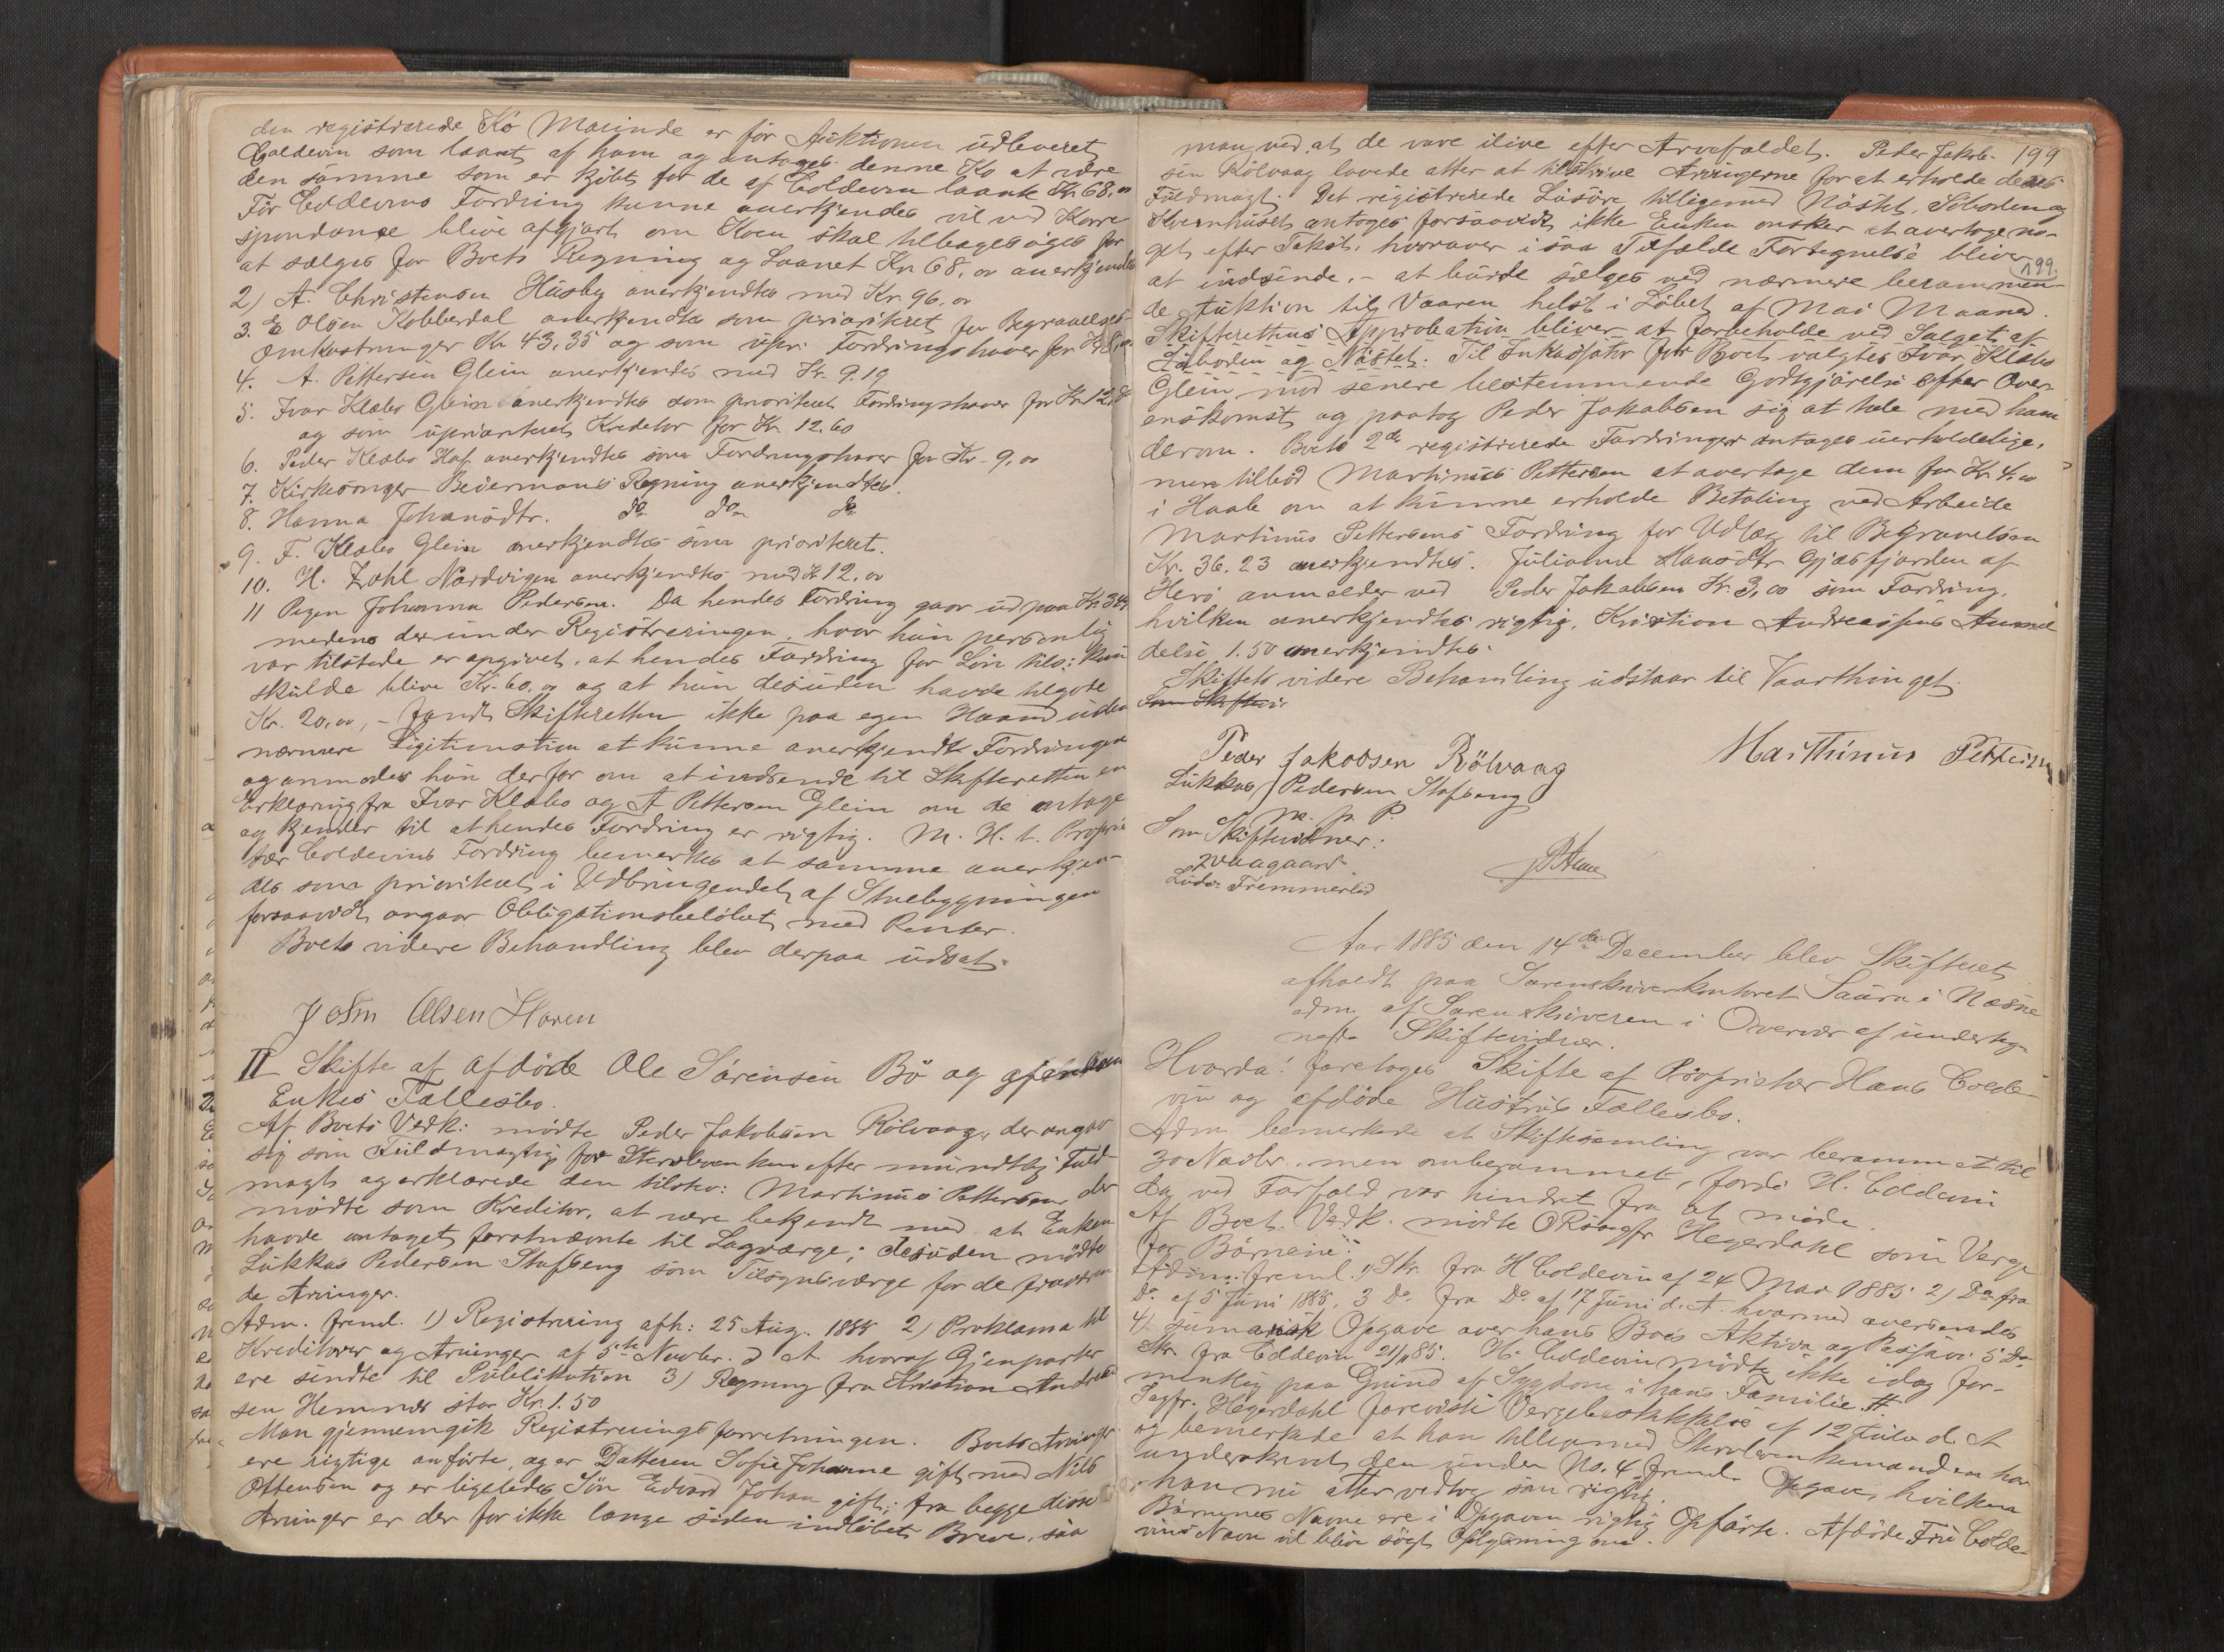 den registrerede Ko Marinde er før Auktionen udleveret
Coldevin som laant af ham og antages denne Ko at være
den samme som er kjöbt for de af Coldevin laante Kr 68,00
Før Coldevins Fordring kunne anerkjendes vil ved Korre-
spondance blive afgjort om Koen skal tilbagesøges for
at sælges for Boets Regning og Laanet Kr 68,00 anerkjendes
2) A. Christensen Husby anerkjendtes med Kr. 96.00
3. E Olsen Kobberdal anerkjendtes som prioriteret for Begravelses-
omkostninger Kr 43,35 og som upr. Fordringshaver for
4. A. Pettersen Glein anerkjendes med Kr. 9.19
5. Ivar Klæbo Glein anerkjendtes som prioriteret Fordringshaver for Kr 12,
og som uprioriteret Kreditor for Kr. 12.60
6. Peder Klæbo Haf anerkjendtes som Fordringshaver for Kr. 9,00
7. Kirkesanger Beiermanns Regning anerkjendtes.
8. Hanna Johansdtr. do do do
9. F. Klæbo Glein anerkjendtes som prioriteret.
10. H. Zahl Nordvigen anerkjendtes med Kr 12,00
11 Pigen Johanna Pedersen. Da hendes Fordring gaar ud paa Kr
medens der under Registreringen, hvor hun personlig
var tilstede er opgivet, at hendes Fordring for Løn tils: kun
skulde blive Kr. 60,00 og at hun desuden havde tilgode
Kr. 20,00, – fandt Skifteretten ikke paa egen Haand uden
nærmere Legitimation at kunne anerkjendt Fordringen
og anmodes hun derfor om at indsende til Skifteretten en
Erklæring fra Ivar Klæbo og A Pettersen Glein om de antage
og kjender til at hendes Fordring er rigtig. M. H. t. Proprie
tær Coldevins Fordring bemerkes at samme anerkjen-
des som prioriteret i Udbringendet af Stuebygningen
forsaavidt angaar Obligationsbeløbet med Renter.
Boets videre Behandling blev derpaa udsat.
John Olsen Haven
II Skifte af afdöde Ole Sörensen Bö og gjenlevn
Enkes Fællesbo.
Af Boets Vedk: mødte Peder Jakobsen Rölvaag, der angav
sig som Fuldmægtig for Stervboenken efter mundtlig Fuld-
magt og erklærede den tilstev: Martinus Pettersen, der
mødte som Kreditor, at være bekjendt med at Enken
havde antaget forstnævnte til Lagværge; desuden mødte
Lukkas Pedersen Stafseng som Tilsynsværge for de fraværen
de Arvinger.
Adm. freml. 1) Registrering afh: 25 Aug. 1885 2) Proklama til
Kreditorer og Arvinger af 5te Novbr. d A. hvoraf Gjenparter
ere sendte til Publikation 3) Regning fra Kristian Andreas
sen Hemnes stor Kr. 1.50
Man gjennemgik Registreringsforretningen. Boets Arvinger
ere rigtige anførte, og er Datteren Sofie Johanne gift med Nils
Ottensen og er ligeledes Sön Edvard Johan gift; fra begge disse
Arvinger er der for ikke længe siden indløbet Breve, saa
man ved at de vare ilive efter Arvefaldet. Peder Jakob- 199
sen Rölvaag lovede atter at tilskrive Arvingerne for at erholde deres
Fuldmagt. Det registrerede Lösöre tilligemed Nöstet, Söboden og
Kvernhuset antoges forsaavidt ikke Enken ønsker at overtage no-
get efter Takst, hvorover i saa Tilfælde Fortegnelse bliver
199.
at indsende, – at burde sælges ved nærmere berammen-
de Auktion til Vaaren helst i Löbet af Mai Maaned.
Skifterettens Approbation bliver at forbeholde ved Salget af
Söboden og Nöstet. Til Inkassator for Boet valgtes Ivar Klæbo
Glein mod senere bestemmende Godtgjörelse efter Over-
enskomst og paatog Peder Jakobsen sig at tale med ham
derom. Boets 2de registrerede Fordringer antages uerholdelige,
men tilböd Martinus Pettersen at overtage dem for Kr. 4.00
i Haab om at kunne erholde Betaling ved Arbeide
Martinus Pettersens Fordring for Udlæg til Begravelsen
Kr. 36.23 anerkjendtes. Juliane Hansdtr Gjæsfjorden af
Herö anmelder ved Peder Jakobsen Kr. 3,00 som Fordring,
hvilken anerkjendtes rigtig. Kristian Andreassens Anmel
delse 1.50 anerkjendtes.
Skiftets videre Behandling udstaar til Vaarthinget.
Som Skiftev:
Peder Jakobsen Rölvaag Marthinus Pettersen
Lukkas Pedersen Stafseng
m. p. P.
Som Skiftevidner:
Zvaagaard
Lüder Tremmerlid
Aar 1885 den 14de December blev Skifteret
afholdt paa Sorenskriverkontoret Saura i Næsne
adm. af Sorenskriveren i Overvær af underteg-
nede Skiftevidner.
Hvorda: foretoges Skifte af Proprietær Hans Colde-
vin og afdöde Hustrus Fællesbo.
Adm. bemerkede at Skiftesamling var berammet til
30 Novbr. men omberammet, fordi H. Coldevin
da ved Forfald var hindret fra at möde.
Af Boets Vedk. mødte ORsagfr Hegerdahl som Verge
for Börnene.
Adm. freml. 1) Skr. fra H Coldevin af 24 Mar 1885 2) Do fra
Do af 5 Juni 1885, 3 Do fra Do af 17 Juni d. A. hvormed oversendes
4) Sumarisk Opgave over hans Boes Aktiva og Passiva 5 Do
Skr. fra Coldevin 21/11 85. H. Coldevin mødte ikke idag for-
mentlig paa Grund af Sygdom i hans Familie.
Sagfr. Hegerdahl foreviste Vergebeskikkelse af 12 Juli d. A
og bemerkede at han tillegmed Stervboenkemanden har
underskrevet den under No. 4 freml. Opgave, hvilken
han nu atter vedtog som rigtig.
Börnenes Navne ere i Opgaven rigtig Opførte. Afdöde Fru Colde-
vins Navn vil blive sögt Oplysning om.